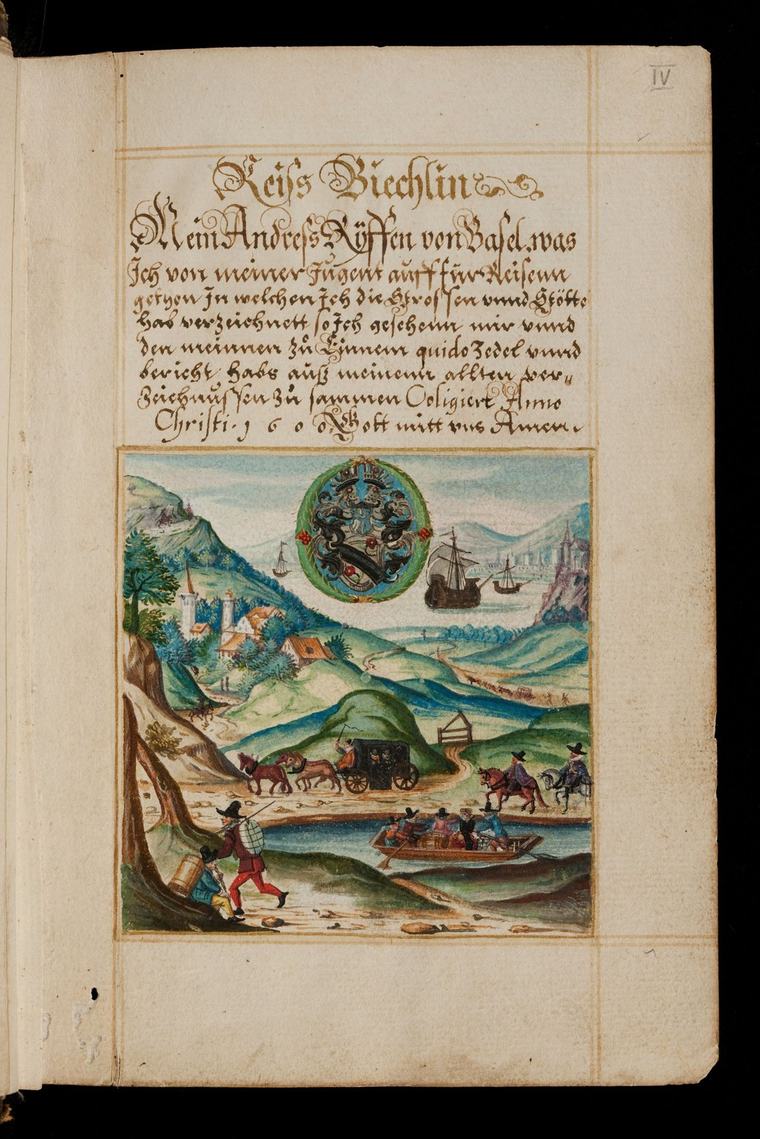 IV
Reiss Biechlin
Mein Andress Ryffen von Basel. was
Ich von meiner Jugent auff für Reisenn
gethon In welchen Ich die
hab verzeichnett so Ich gesehenn mir vnnd
den meinnen zů Einnem quido Zedel vnnd
bericht habs auß meinenn allten ver„
zeichnussen zů sammen Coligiert Anno
Christi. 1600 Gott mitt vns Amen.